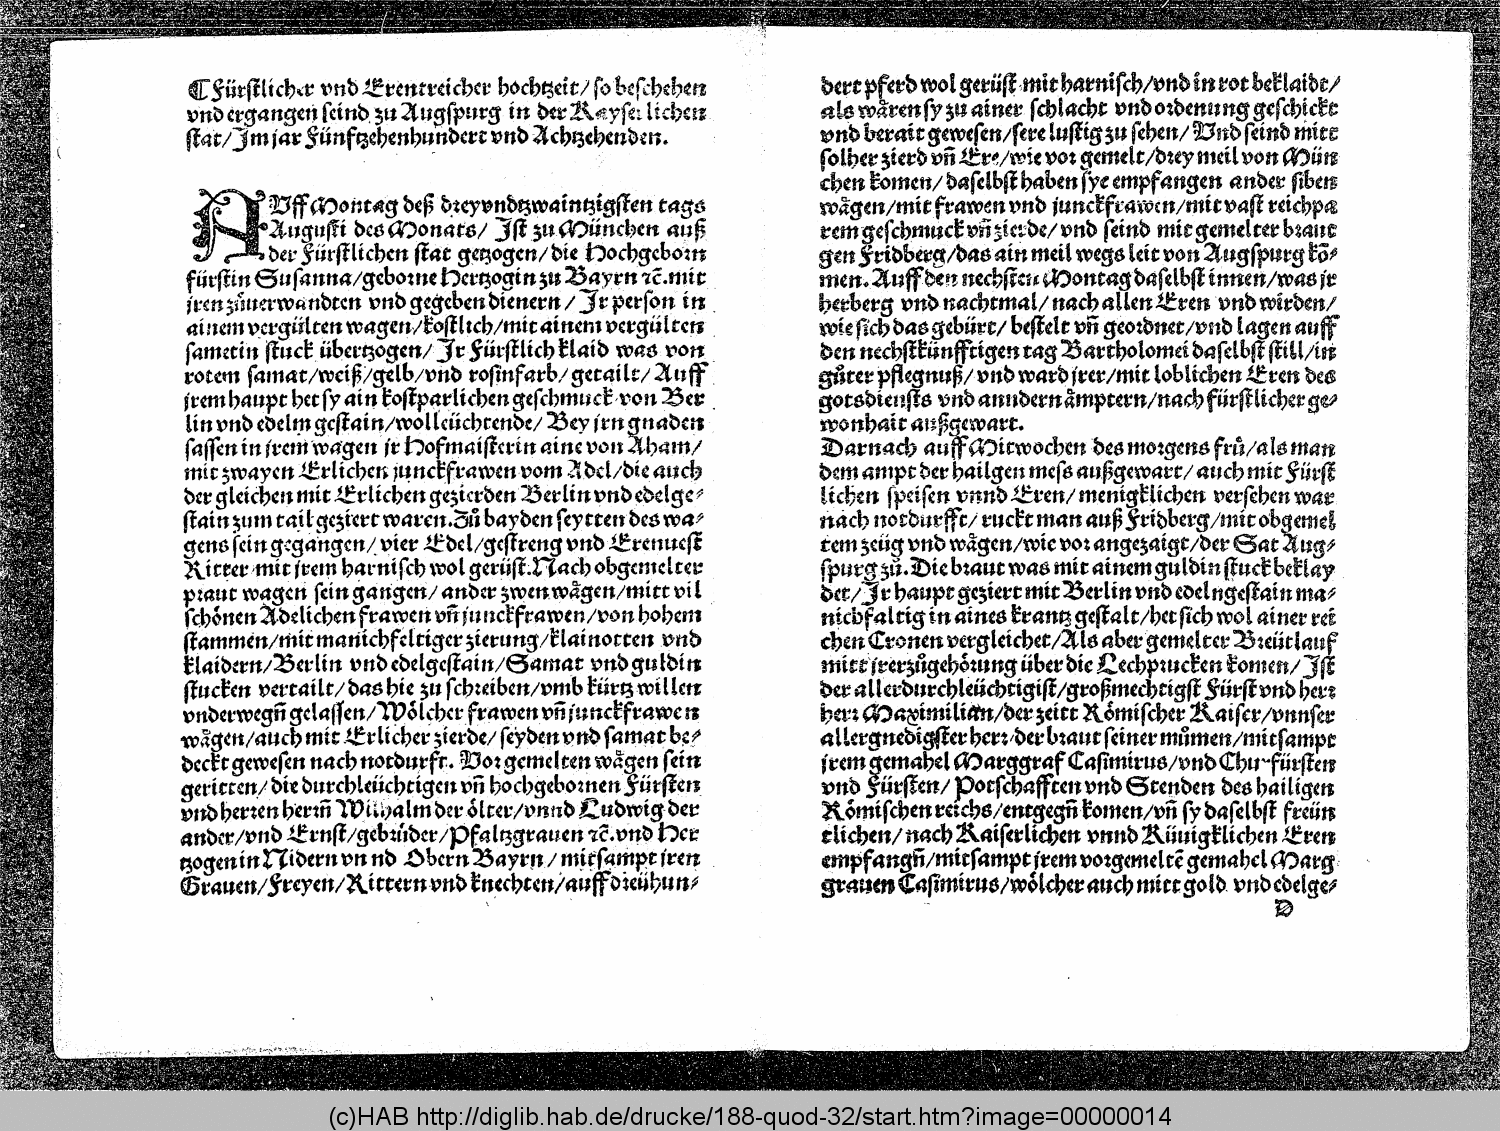 ¶ Fürstlicher vnd Erentreicher hochtzeit/ so beschehen
vnd ergangen seind zu Augspurg in der Kayserlichen
stat/ Im jar Fünfftzehenhundert vnd Achtzehenden.
AVff Montag deß dreyvndtzwaintzigsten tags
Augusti des Monats/ Ist zu München auß
der Fürstlichen stat getzogen/ die Hochgeborn
fürstin Susanna/ geborne Hertzogin zu Bayrn ꝛc̄. mit
jren zůuerwandten vnd gegeben dienern/ Ir person in
ainem vergülten wagen/ kostlich/ mit ainem vergülten
sametin stuck übertzogen/ Ir Fürstlich klaid was von
rotem samat/ weiß/ gelb/ vnd rosinfarb/ getailt/ Auff
jrem haupt het sy ain kostparlichen geschmuck von Ber
lin vnd edelm gestain/ wolleüchtende/ Bey jrn gnaden
sassen in jrem wagen jr Hofmaisterin aine von Aham/
mit zwayen Erlichen junckfrawen vom Adel/ die auch
der gleichen mit Erlichen gezierden Berlin vnd edelge⸗
stain zum tail geziert waren. Zů bayden seytten des wa⸗
gens sein gegangen/ vier Edel/ gestreng vnd Erenuest
Ritter mit jrem harnisch wol gerüst. Nach obgemelter
praut wagen sein gangen/ ander zwen wågen/ mitt vil
schönen Adelichen frawen vn̄ junckfrawen/ von hohem
stammen/ mit manichfeltiger zierung/ klainotten vnd
klaidern/ Berlin vnd edelgestain/ Samat vnd guldin
stucken vertailt/ das hie zu schreiben/ vmb kürtz willen
vnderwegn̄ gelassen/ Wölcher frawen vn̄ junckfrawen
wågen/ auch mit Erlicher zierde/ seyden vnd samat be⸗
deckt gewesen nach notdurft. Vor gemelten wågen sein
geritten/ die durchleüchtigen vn̄ hochgebornen Fürsten
vnd herren herrn̄ Wilhalm der ölter/ vnnd Ludwig der
ander/ vnd Ernst/ gebrüder/ Pfaltzgrauen ꝛc̄. vnd Her
tzogen in Nidern vn nd Obern Bayrn/ mitsampt jren
Grauen/ Freyen/ Rittern vnd knechten/ auff dreühun⸗
dert pferd wol gerüst mit harnisch/ vnd in rot beklaidt/
als wåren sy zu ainer schlacht vnd ordenung geschickt
vnd berait gewesen/ sere lustig zu sehen/ Vnd seind mitt
solher zierd vn̄ Ere/ wie vor gemelt/ drey meil von Mün
chen komen/ daselbst haben sye empfangen ander siben
wågen/ mit frawen vnd junckfrawen/ mit vast reichpæ
rem geschmuck vn̄ zierde/ vnd seind mit gemelter braut
gen Fridberg/ das ain meil wegs leit von Augspurg kō⸗
men. Auff den nechsten Montag daselbst innen/ was jr
herberg vnd nachtmal/ nach allen Eren vnd wirden/
wie sich das gebürt/ bestelt vn̄ geordnet/ vnd lagen auff
den nechstkünfftigen tag Bartholomei daselbst still/ in
gůter pflegnuß/ vnd ward jrer/ mit loblichen Eren des
gotsdiensts vnd anndern åmptern/ nach fürstlicher ge⸗
wonhait außgewart.
Darnach auff Mitwochen des morgens frů/ als man
dem ampt der hailgen mess außgewart/ auch mit Fürst
lichen speisen vnnd Eren/ menigklichen versehen war
nach notdurfft/ ruckt man auß Fridberg/ mit obgemel
tem zeüg vnd wågen/ wie vor angezaigt/ der Sat Aug⸗
spurg zů. Die braut was mit ainem guldin stuck beklay
det/ Ir haupt geziert mit Berlin vnd edelngestain ma⸗
nichfaltig in aines krantz gestalt/ het sich wol ainer rei
chen Cronen vergleichet/ Als aber gemelter Breütlauf
mitt jrer zůgehörung über die Lechprucken komen/ Ist
der allerdurchleüchtigist/ großmechtigst Fürst vnd herr
herr Maximilian/ der zeitt Römischer Kaiser/ vnnser
allergnedigster herr/ der braut seiner můmen/ mitsampt
jrem gemahel Marggraf Casimirus/ vnd Churfürsten
vnd Fürsten/ Potschafften vnd Stenden des hailigen
Römischen reichs/ entgegn̄ komen/ vn̄ sy daselbst freün
tlichen/ nach Kaiserlichen vnnd Künigklichen Eren
empfangn̄/ mitsampt jrem vorgemeltē gemahel Marg
grauen Casimirus/ wölcher auch mitt gold vnd edelge⸗
D
(c)HAB http://diglib.hab.de/drucke/188-quod-32/start.htm?image=00000014